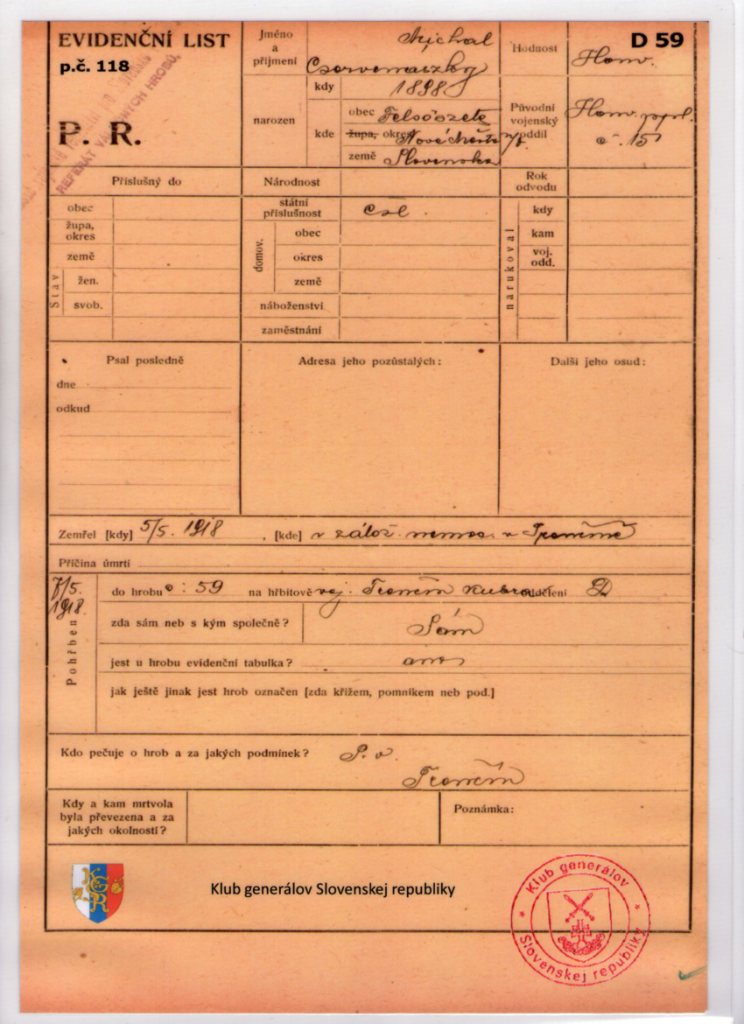 EVIDENČNÍ LIST
p.č. 118
P. R.
REFERÁT VÁLEČNÝCH HROBŮ
Jméno a příjmení
Michal
Czervenaszky
Hodnost
D 59
Honv.
narozen
kdy
1898
kde
obec Felsöszete
župa, okres Nové
země Slovensko
Původní vojenský oddíl
Honv. ppl.
č. 15
Příslušný do
Národnost
Rok odvodu
obec
župa, okres
země
Stav
žen.
svob.
státní příslušnost
čsl.
domov.
obec
okres
země
náboženství
zaměstnání
narukoval
kdy
kam
voj. odd.
Psal posledně
dne
odkud
Adresa jeho pozůstalých:
Další jeho osud:
Zemřel [kdy] 5/5. 1918, [kde] v zálož. nemoc. v Trenčíně
Příčina úmrtí
Pohřben
7/5. 1918.
do hrobu č: 59 na hřbitově voj. Trenčín Kubra oddělení D
zda sám neb s kým společně? Sám
jest u hrobu evidenční tabulka? ano
jak ještě jinak jest hrob označen [zda křížem, pomníkem neb pod.]
Kdo pečuje o hrob a za jakých podmínek?
Trenčín
Kdy a kam mrtvola byla převezena a za jakých okolností?
Poznámka:
KGSR
Klub generálov Slovenskej republiky
Klub generálov
Slovenskej republiky